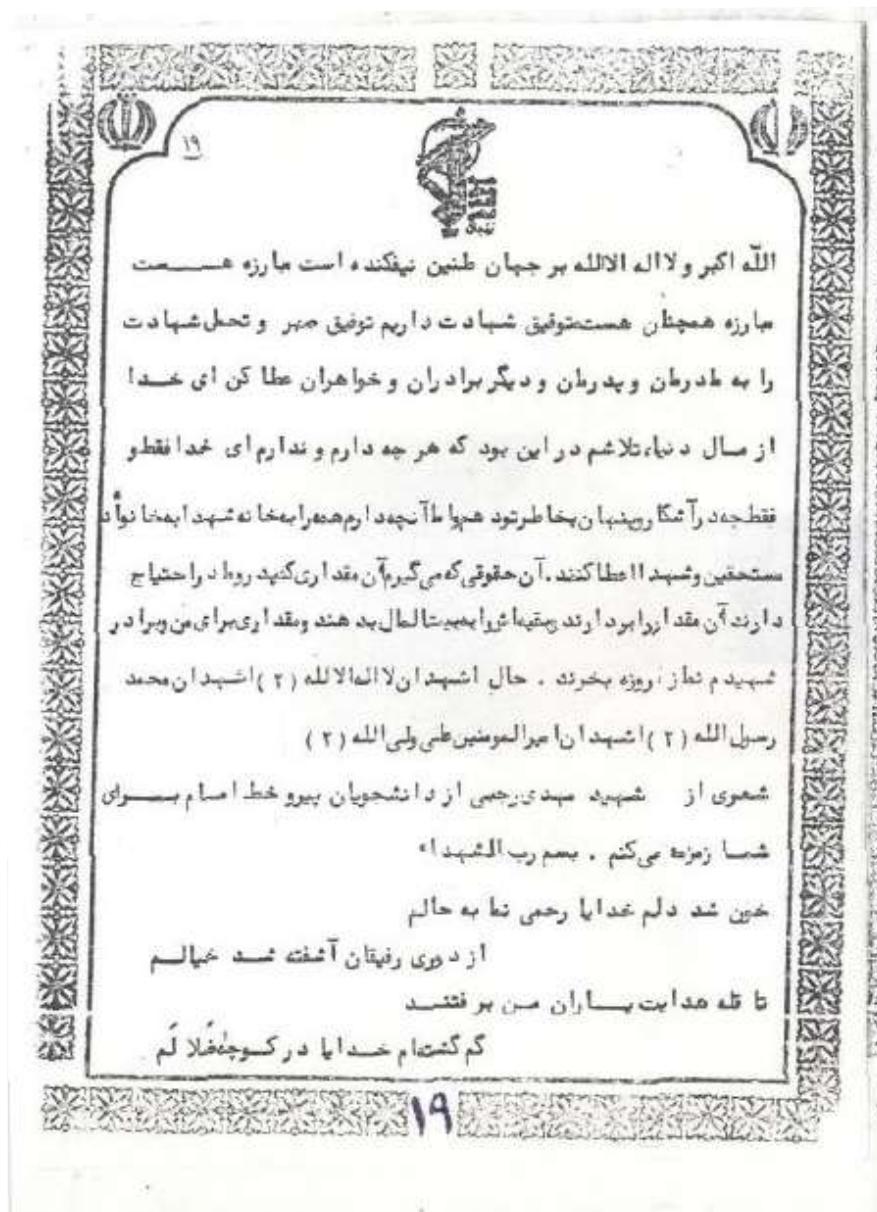 ۱۹
اللّه اکبر و لااله الاالله بر جهان طنین نیفکنده است مبارزه هست
مبارزه همچنان هست توفیق شهادت داریم توفیق صبر و تحمل شهادت
را به مادرمان و پدرمان و دیگر برادران و خواهران عطا کن ای خدا
از مال دنیا، تلاشم در این بود که هر چه دارم و ندارم ای خدا فقط و
فقط چه در آشکار و پنهان بخاطر تو د آنچه دارم همه را به خانه شهدا به خانواد
مستحقین و شهدا اعطا کنند . آن حقوقی که می گیرم آن مقداری که در احتیاج
دارند آن مقدار را بردارند و بقیه اش را به بیت المال بدهند و مقداری برای من و برادر
شهیدم نماز روزه بخرند . حال اشهد ان لا اله الا الله ( ۲ ) اشهد ان محمد
رسول الله ( ۲ ) اشهد ان امیرالمومنین علی ولی الله ( ۲ )
شعری از شهید مهدی رجبی از دانشجویان پیرو خط امام برای
شما زمزمه می کنم . بسم رب الشهداء
خون شد دلم خدایا رحمی نما به حالم
از دوری رفیقان آشفته شد خیالم
تا قله هدایت یاران من برفتند
گم گشته ام خدایا در کوچه ضلالم
۱۹